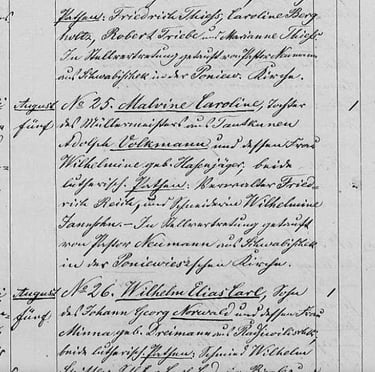 Pathen: Friedrich Thiess, Caroline Berg-
holtz, Robert Triebe und Marianne Thiess.
In Stellvertretung getauft von Pastor Neumann
aus Schwabischek in der Poniew. Kirche.
August
fünf
No 25. Malvine Caroline, Tochter
des Müllermeisters aus Tautkunen
Adolph Volkmann und dessen Frau
Wilhelmine geb. Hasenjäger, beide
lutherisch. Pathen: Verwalter Fried-
rich Reich, und Schneiderin Wilhelmine
In Stellvertretung getauft
von Pastor Neumann aus Schwabischek
in der Poniewieschschen Kirche.
1
August
fünf
No 26. Wilhelm Elias Carl, Sohn
des Johann Georg Norwald und dessen Frau
Minna geb. Dreimann aus
beide lutherisch. Pathen: Schmied Wilhelm
1